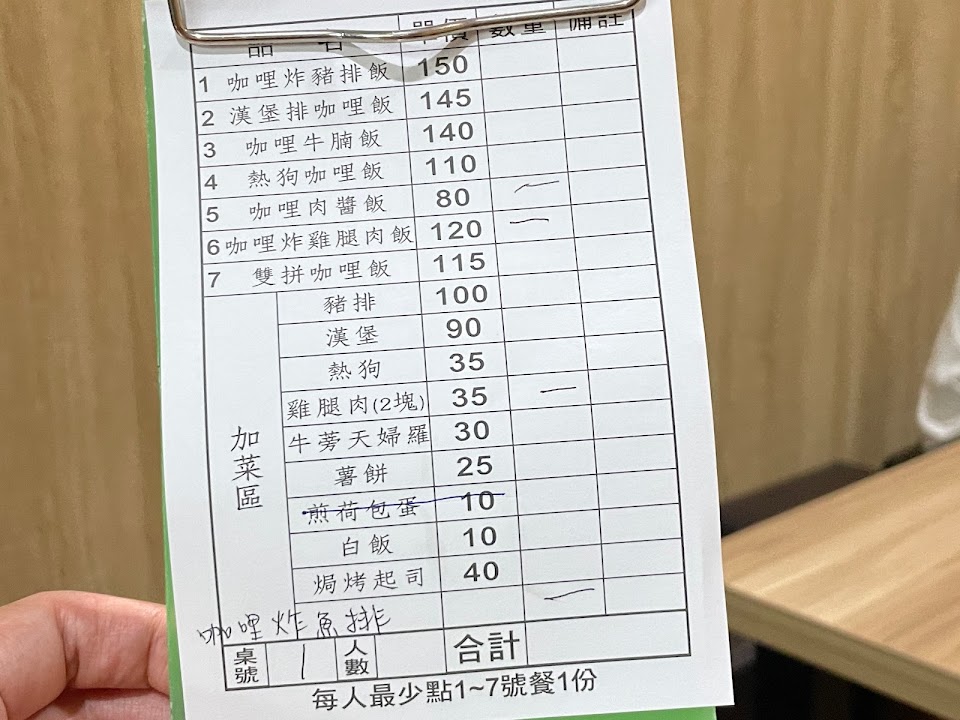 品名 單價 數量 備註
1 咖哩炸豬排飯 150
2 漢堡排咖哩飯 145
3 咖哩牛腩飯 140
4 熱狗咖哩飯 110
5 咖哩肉醬飯 80 一
6 咖哩炸雞腿肉飯 120 一
7 雙拼咖哩飯 115
加菜區
豬排 100
漢堡 90
熱狗 35
雞腿肉(2塊) 35 一
牛蒡天婦羅 30
薯餅 25
煎荷包蛋 10
白飯 10
焗烤起司 40
咖哩炸魚排 一
桌號 1 人數 合計
每人最少點1~7號餐1份